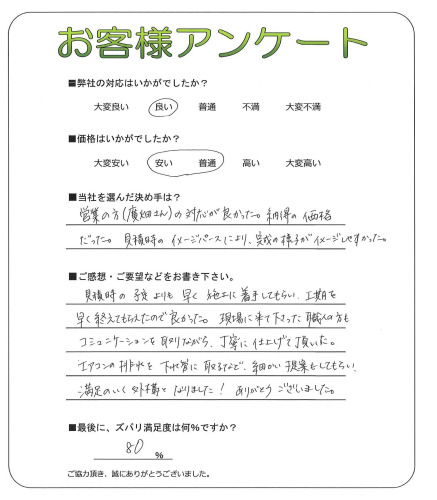 お客様アンケート
■弊社の対応はいかがでしたか？
大変良い 良い 普通 不満 大変不満
■価格はいかがでしたか？
大変安い 安い 普通 高い 大変高い
■当社を選んだ決め手は？
営業の方（廣畑さん）の対応が良かった。納得の価格
だった。見積時のイメージパースにより、完成の様子がイメージしやすかった。
■ご感想・ご要望などをお書き下さい。
見積時の予定よりも早く施工に着手してもらい、工期を
早く終えてもらえたので良かった。現場に来て下さった職人の方も
コミュニケーションを取りながら、丁寧に仕上げて頂いた。
エアコンの排水を下水管に取るなど、細かい提案もしてもらい、
満足のいく外構となりました！ありがとうございました。
■最後に、ズバリ満足度は何%ですか？
80 %
ご協力頂き、誠にありがとうございました。